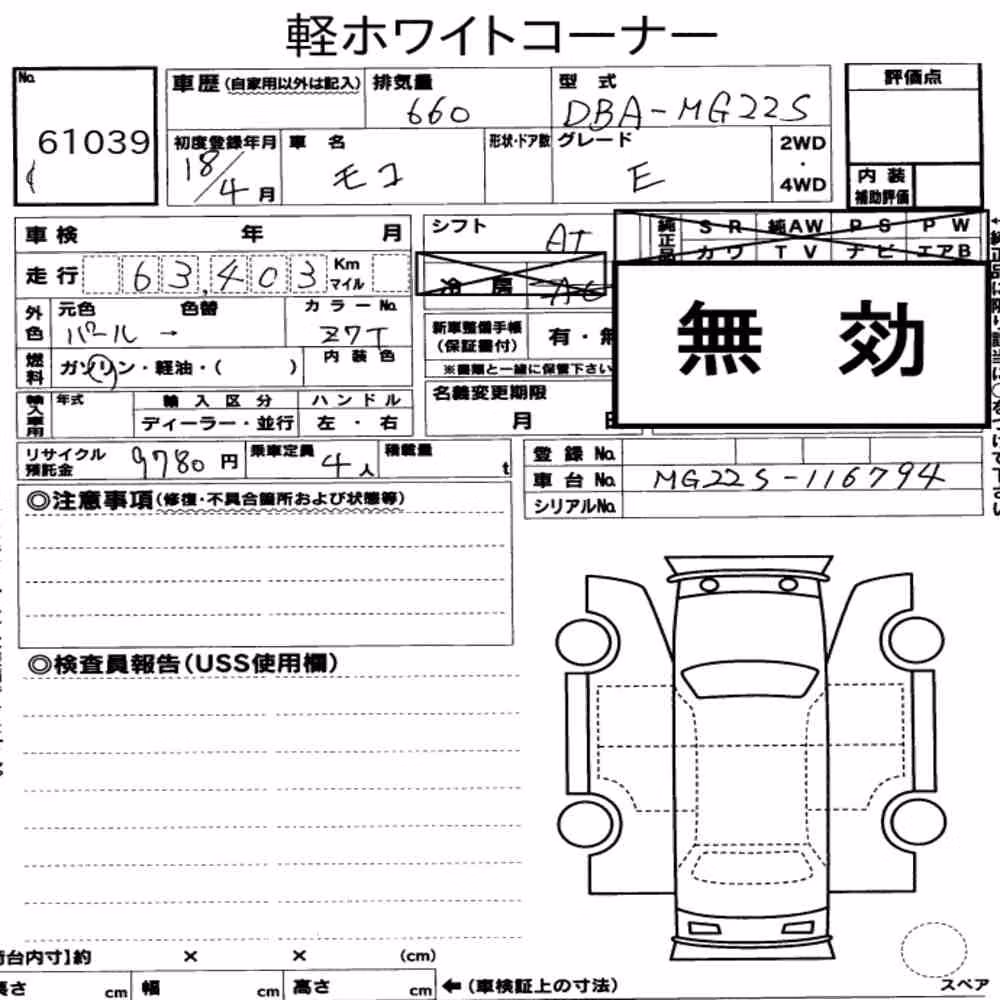 軽ホワイトコーナー
No. 61039
車歴(自家用以外は記入)
排気量 660
型式 DBA-MG22S
評価点
初度登録年月 18/4月
車名 モコ
形状・ドア数
グレード E
2WD・4WD
内装補助評価
車検 年 月
シフト AT
純正品 SR 純AW PS PW
カワ TV ナビ エアB
走行 63,403 Km マイル
冷房 AC
外色 元色 パール → 色替
カラーNo. Z7T
新車整備手帳(保証書付) 有・無
無効
燃料 ガソリン・軽油・( )
内装色
※書類と一緒に保管下さい
輸入車用 年式 輸入区分 ハンドル
ディーラー・並行 左・右
名義変更期限
月 日
リサイクル預託金 9780円
乗車定員 4人
積載量 t
登録No.
車台No. MG22S-116794
シリアルNo.
◎注意事項(修復・不具合箇所および状態等)
◎検査員報告(USS使用欄)
荷台内寸】約 × × (cm)
長さ cm 幅 cm 高さ cm ←(車検証上の寸法)
スペア